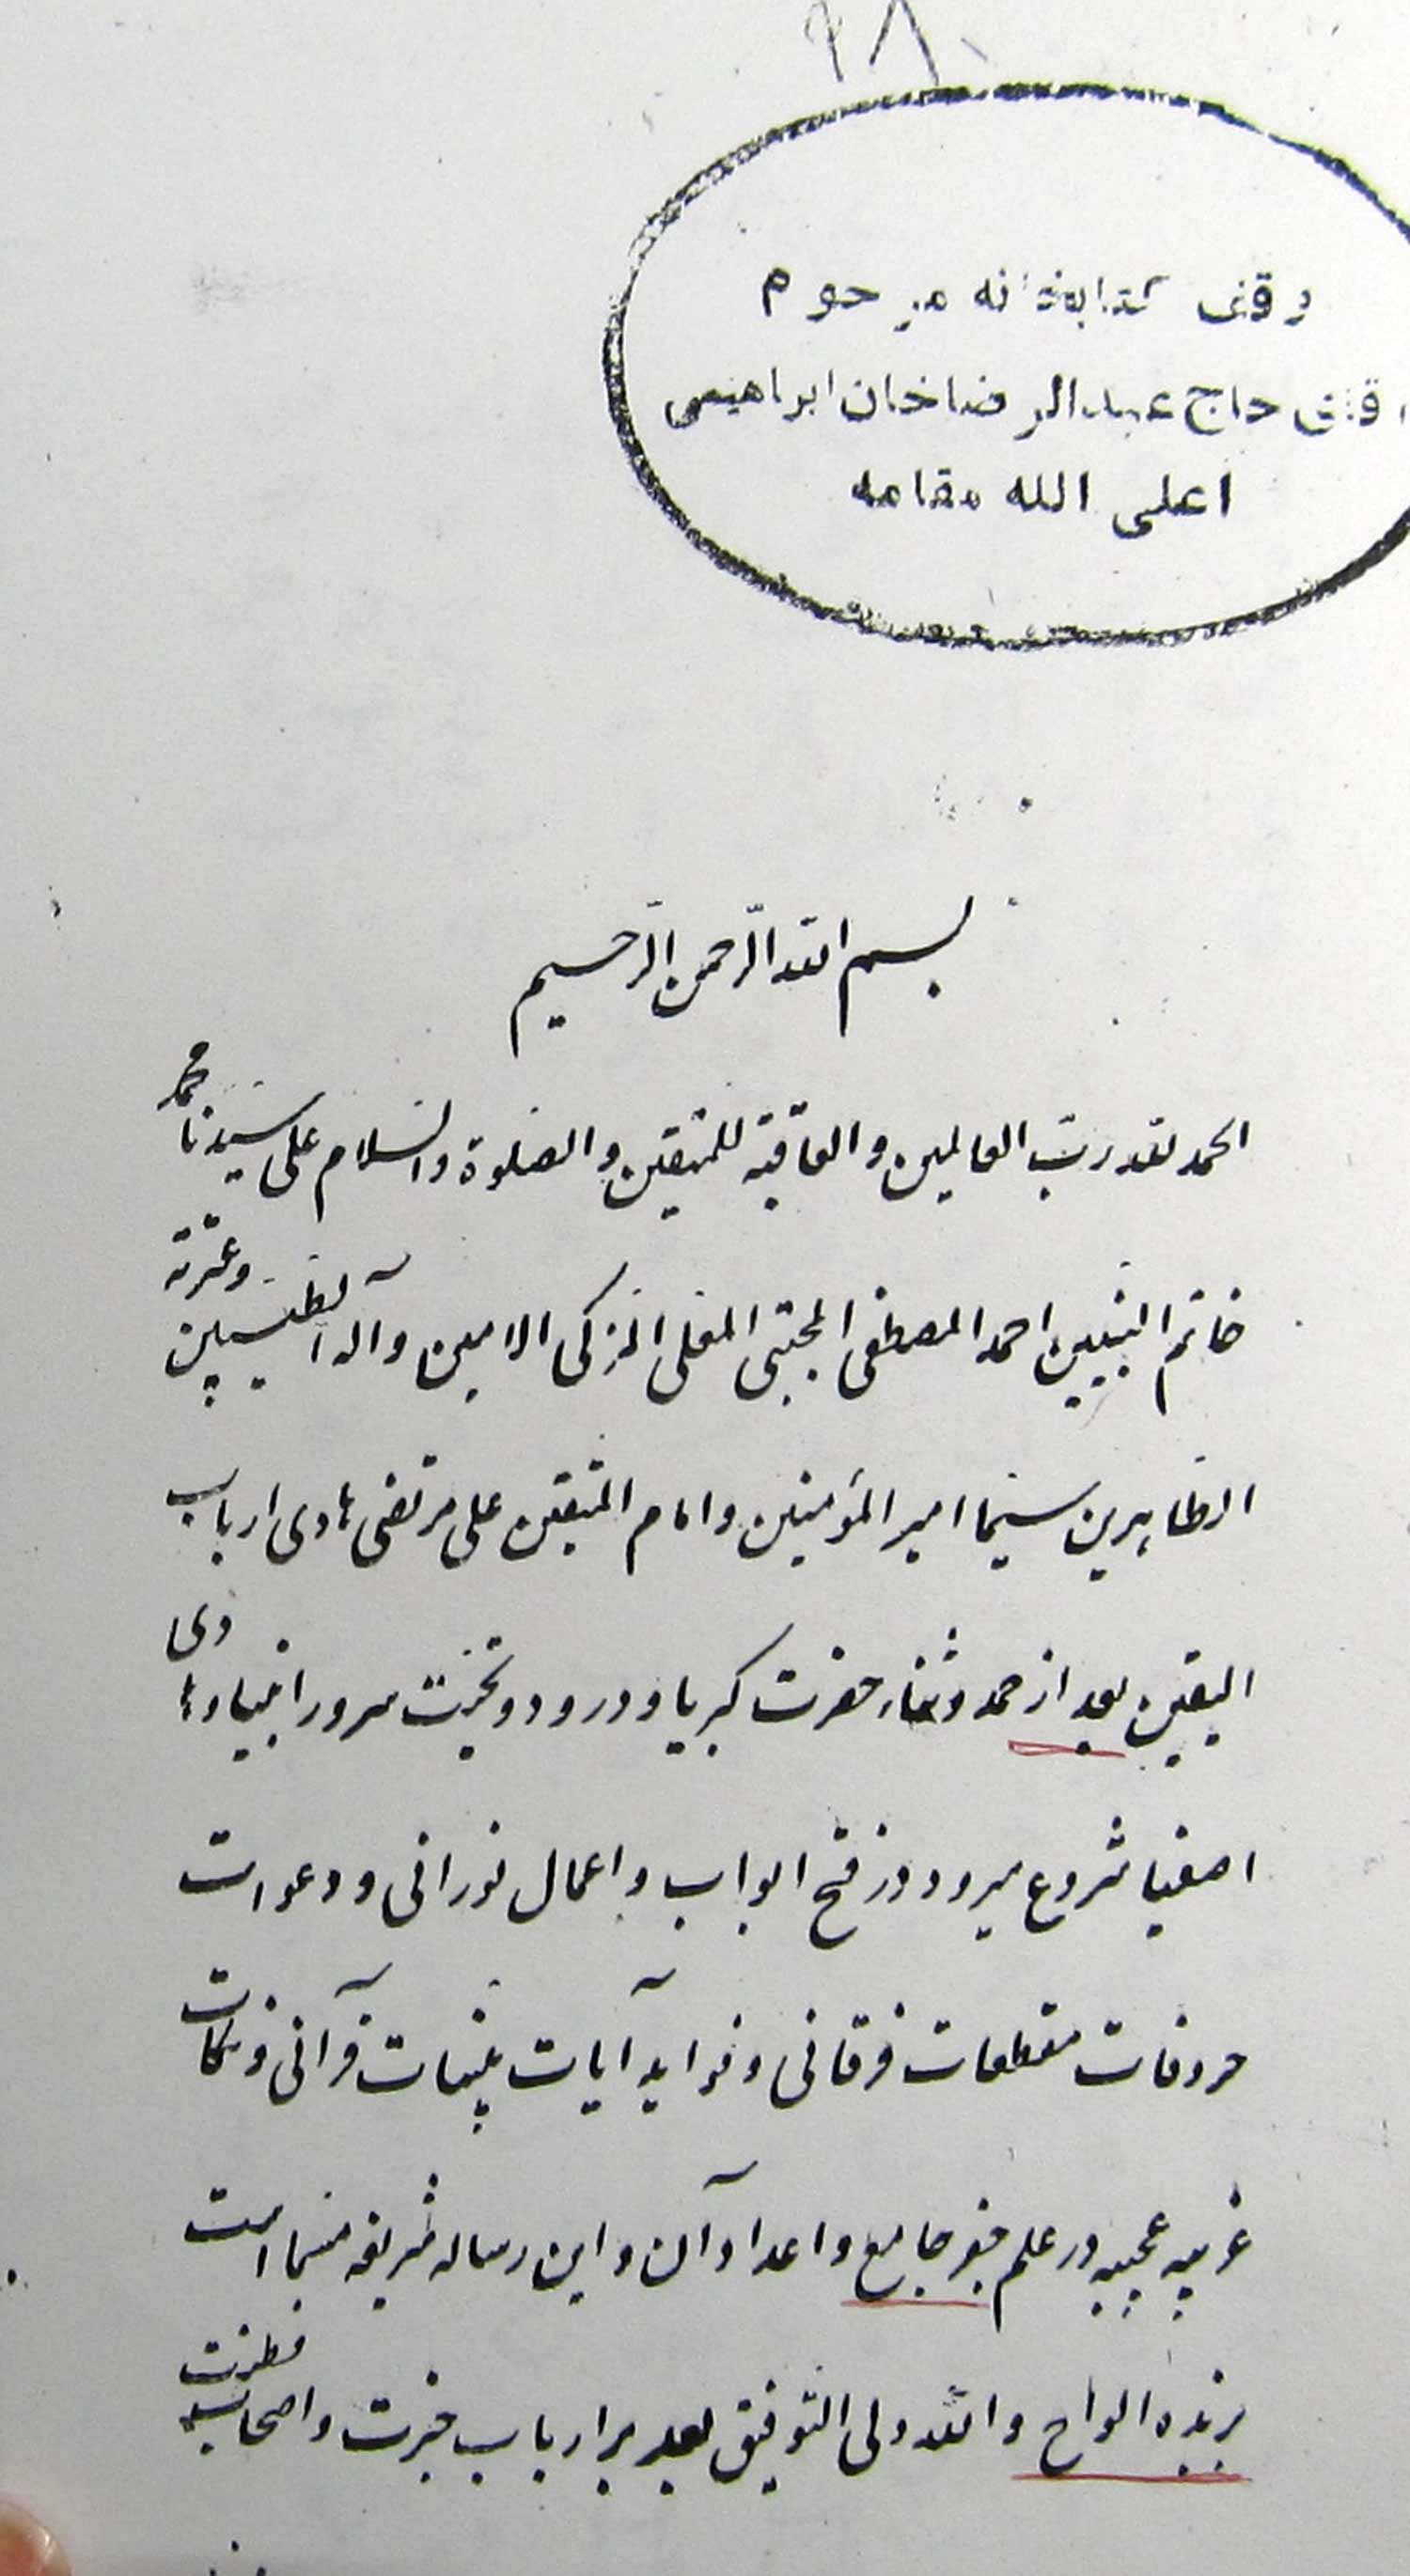 ۲۸
وقف کتابخانه مرحوم
آقای حاج عبدالرضاخان ابراهیمی
اعلی الله مقامه
بسم الله الرّحمن الرّحیم
الحمد لله ربّ العالمین و العاقبة للمتقین و الصّلوة والسّلام علی سیّدنا محمد
خاتم النبیین احمد المصطفی المجتبی المعلی المزکی الامین و آله الطیّبین وعترته
الطاهرین سیّما امیر المؤمنین و امام المتقین علی مرتضی هادی ارباب
الیقین بعد از حمد و ثناء حضرت کبریا و درود و تحیّت سرور انبیاء و
اصفیا شروع میرود در فتح ابواب و اعمال نورانی و دعوات
حروفات مقطعات فرقانی و فواید آیات بیّنات قرآنی و نکات
غریبه عجیبه در علم جفر جامع و اعداد آن و این رساله شریفه مسمّا است
بزبده الواح و الله ولی التوفیق بعد بر ارباب خبرت و اصحاب فطرت